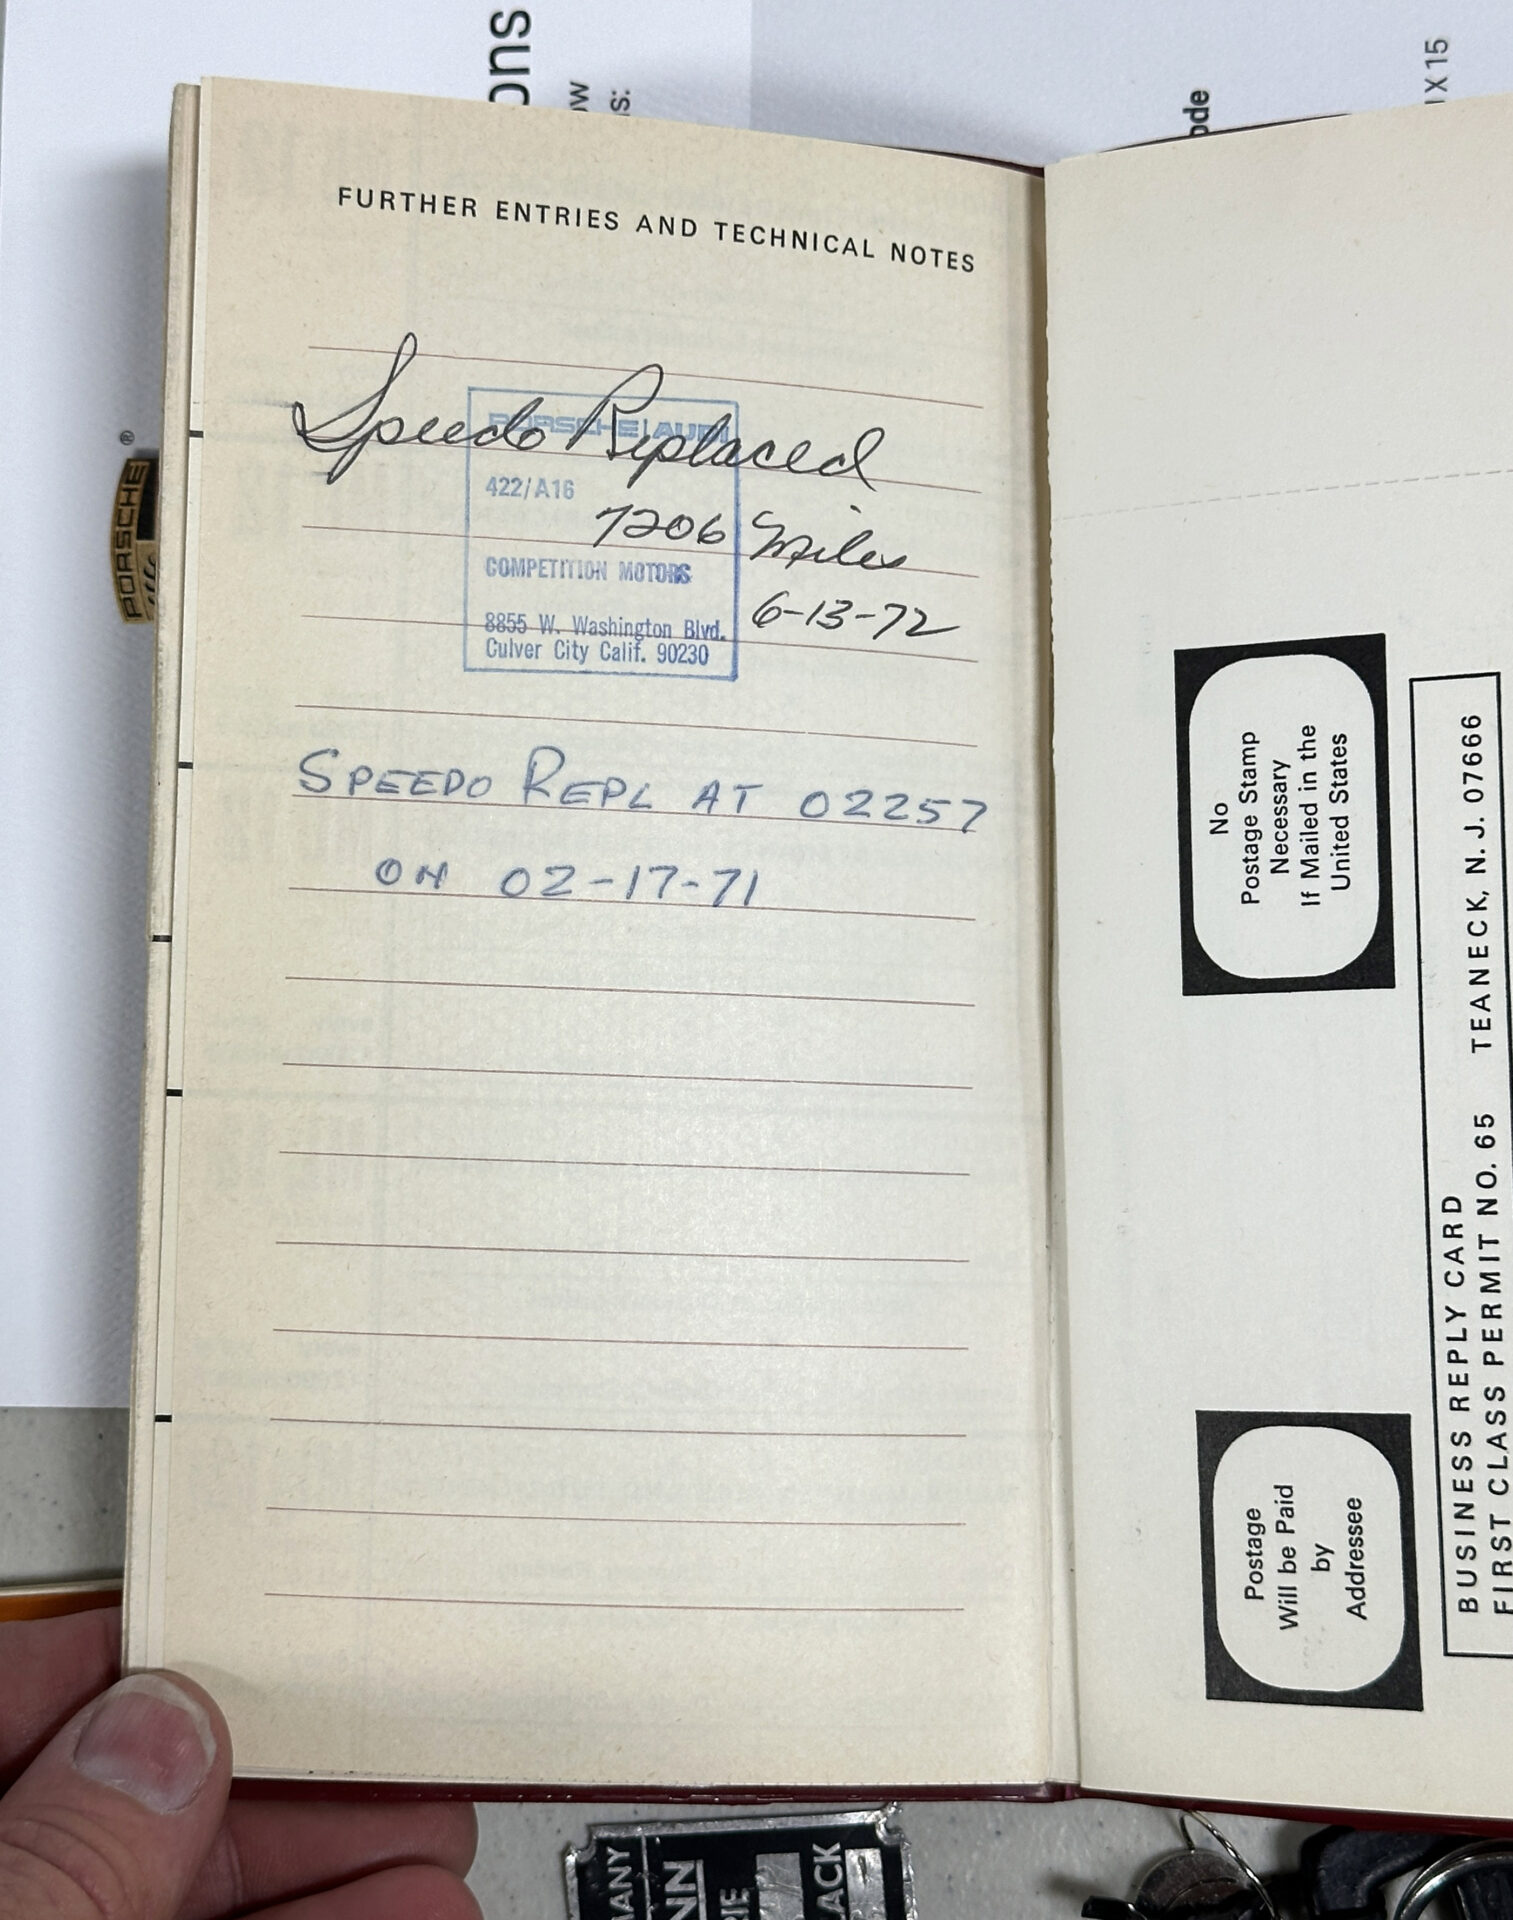 ons
ow
s:
ode
X 15
PORSCHE
®
FURTHER ENTRIES AND TECHNICAL NOTES
Speedo Replaced
7206 Miles
6-13-72
PORSCHE AUDI
422/A16
COMPETITION MOTORS
8855 W. Washington Blvd.
Culver City Calif. 90230
SPEEDO REPL AT 02257
ON 02-17-71
No
Postage Stamp
Necessary
If Mailed in the
United States
Postage
Will be Paid
by
Addressee
BUSINESS REPLY CARD
FIRST CLASS PERMIT NO. 65 TEANECK, N. J. 07666
MANY
NN
IE
LACK